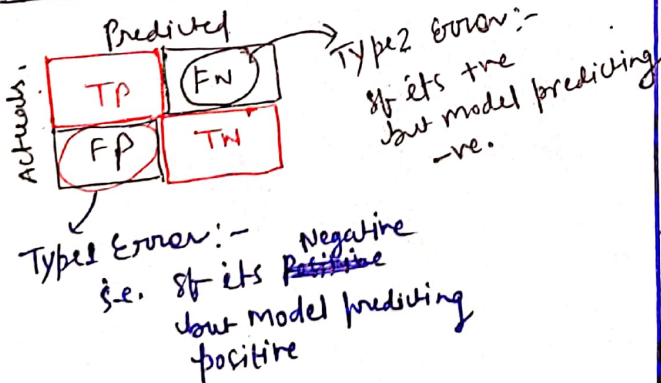 Predicted
Actuals.
TP
FN
FP
TN
Type2 Error:-
If its +ve
but model predicting
-ve.
Type1 Error:-
i.e. If its Negative
but model predicting
positive